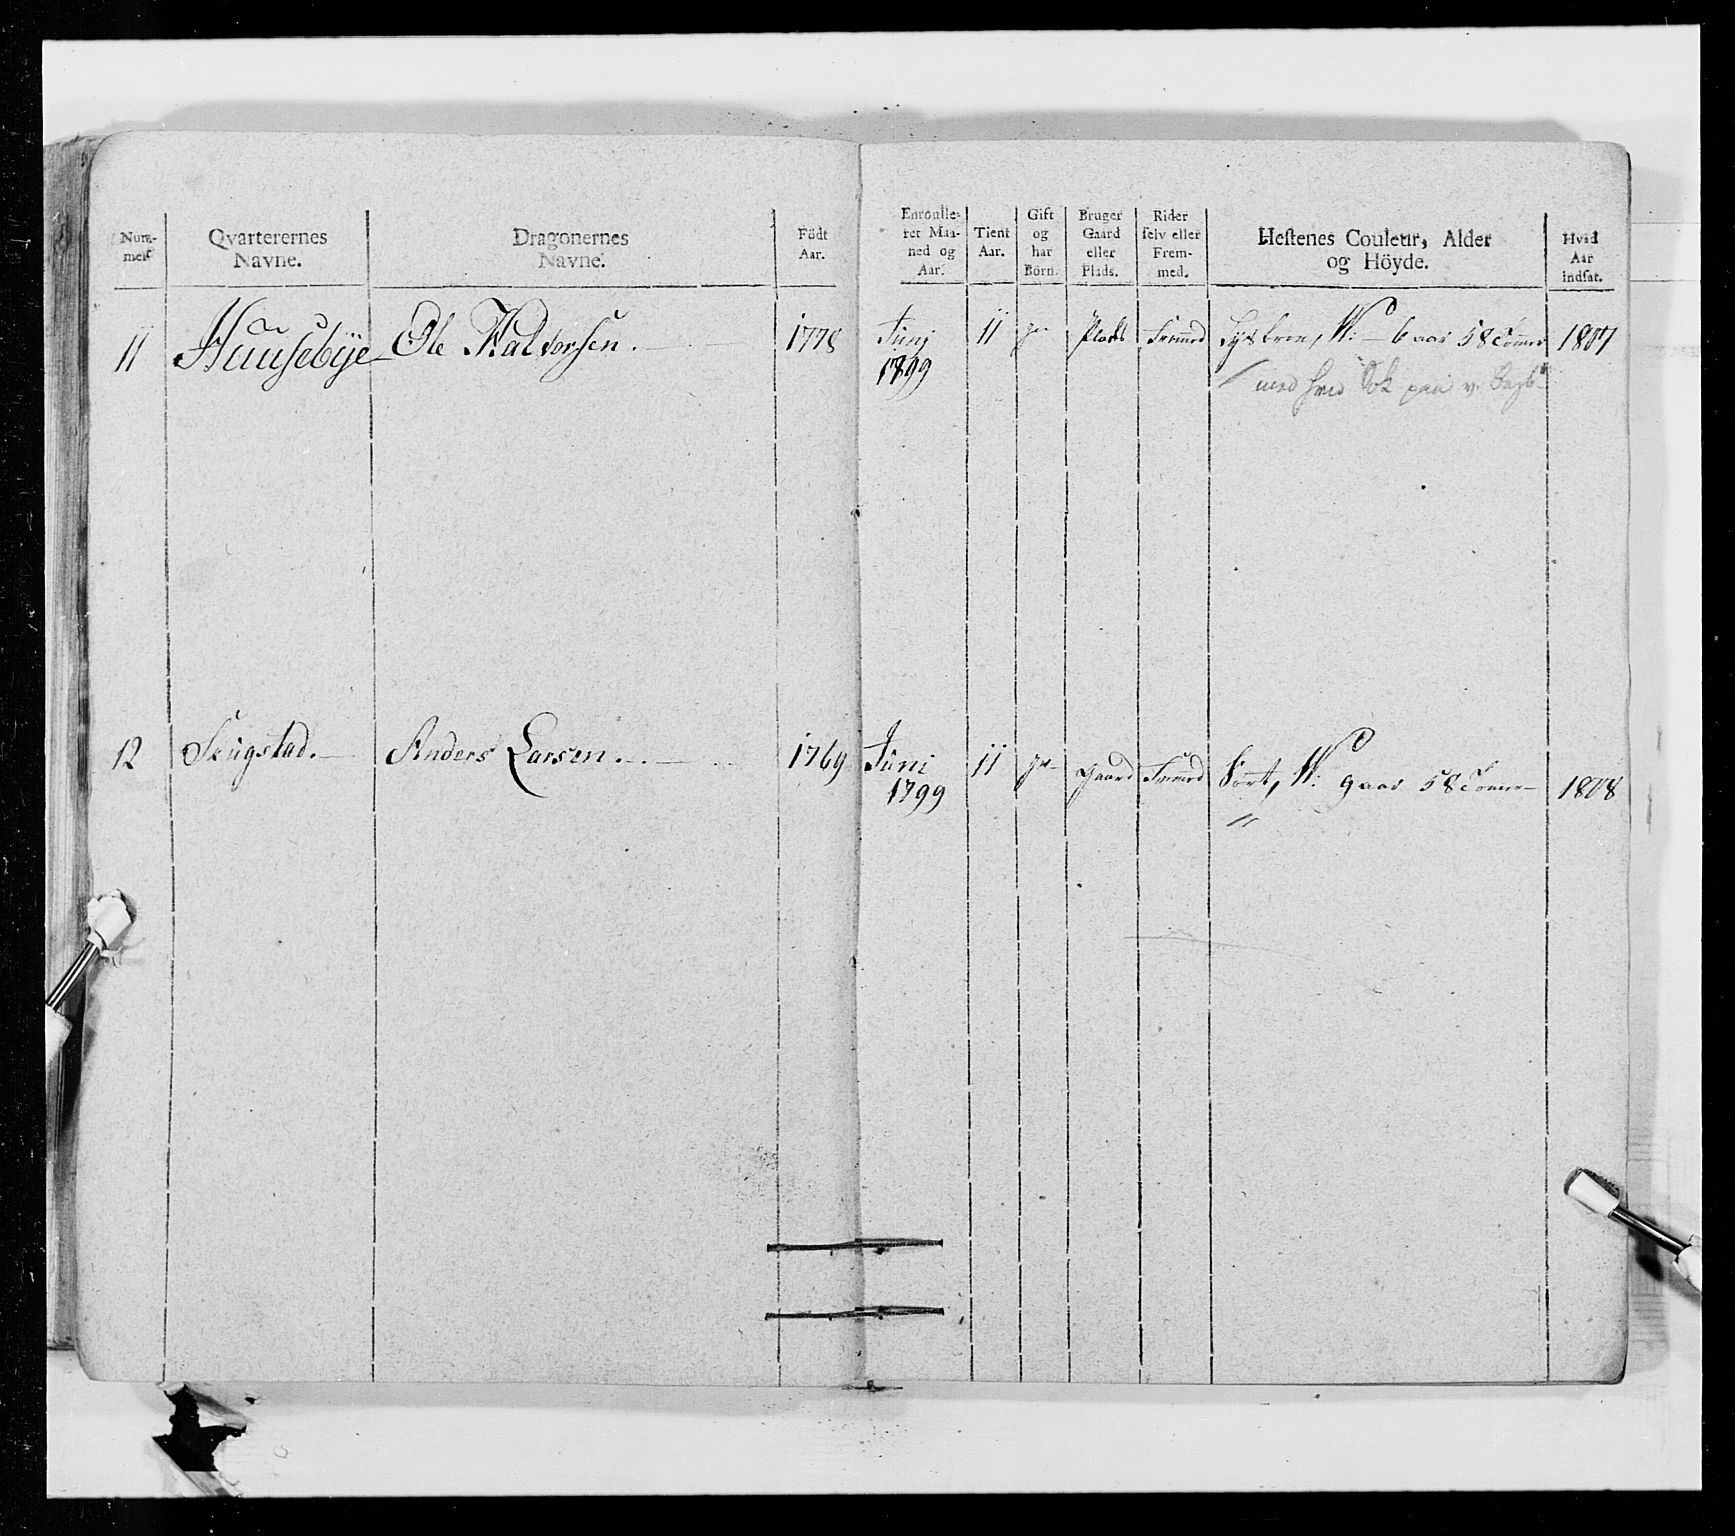 Num-
mer.
Qvarterernes
Navne.
Dragonernes
Navne.
Födt
Aar.
Enroulle-
ret Maa-
ned og
Aar.
Tient
Aar.
Gift
og
har
Börn.
Bruger
Gaard
eller
Plads.
Rider
selv eller
Frem-
med.
Hestenes Couleur, Alder
og Höyde.
Hvad
Aar
indsat.
11 Huusebye Ole Halvorsen. 1778 Junj 11 Plads Fremed W: 6 aar 58 Tomer 1807
1799
med hvid Sok paa v. Bagb.
12 Anders Larsen. 1769 Juni 11 gaard Fremed Sort, W: 9 aar 58 Tomer 1808
1799